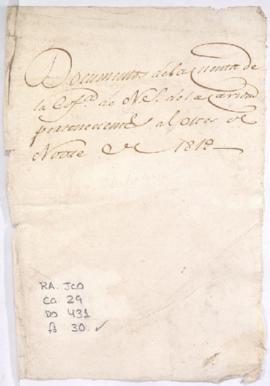 Documentos de la Cuenta de
la Cofª. de N.S. de la
pertenecientes al mes de
Nove de 181
RA. JCO
Ca 29
DO 431
fs 30